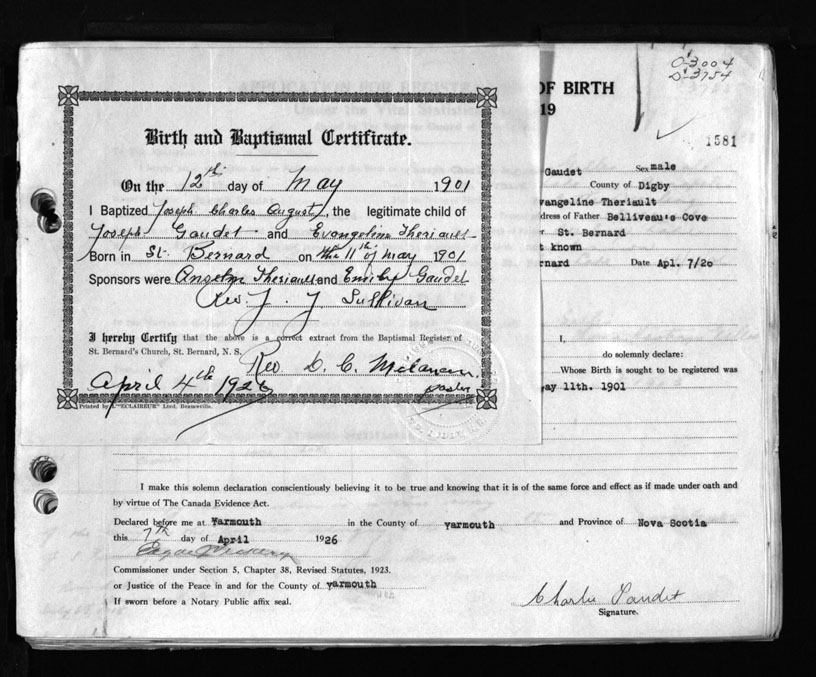 O-3004
D-3754
OF BIRTH
19
1581
Birth and Baptismal Certificate.
On the 12th day of May 1901
I Baptized Joseph Charles August, the legitimate child of
Joseph Gaudet and Evangeline Theriault
Born in St. Bernard on the 11th of May 1901
Sponsors were Anselm Theriault and Emily Gaudet
Rev J. J Sullivan
I hereby Certify that the above is a correct extract from the Baptismal Register of
St. Bernard's Church, St. Bernard, N. S.
Rev. D. C.
April 4th 1926 Pastor
Printed by L'"ECLAIREUR" Ltd, Beauceville.
Gaudet Sex male
County of Digby
vangeline Theriault
dress of Father Belliveau's Cove
r St. Bernard
t known
rnard Date Apl. 7/26
I,
do solemnly declare:
Whose Birth is sought to be registered was
ay 11th. 1901
I make this solemn declaration conscientiously believing it to be true and knowing that it is of the same force and effect as if made under oath and
by virtue of The Canada Evidence Act.
Declared before me at Yarmouth in the County of yarmouth and Province of Nova Scotia
this 7th day of April 1926
Commissioner under Section 5, Chapter 38, Revised Statutes, 1923.
or Justice of the Peace in and for the County of yarmouth
If sworn before a Notary Public affix seal.
Charlie Gaudet
Signature.